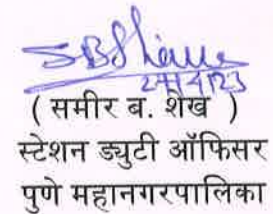 24/4/23
( समीर ब. शेख )
स्टेशन ड्युटी ऑफिसर
पुणे महानगरपालिका